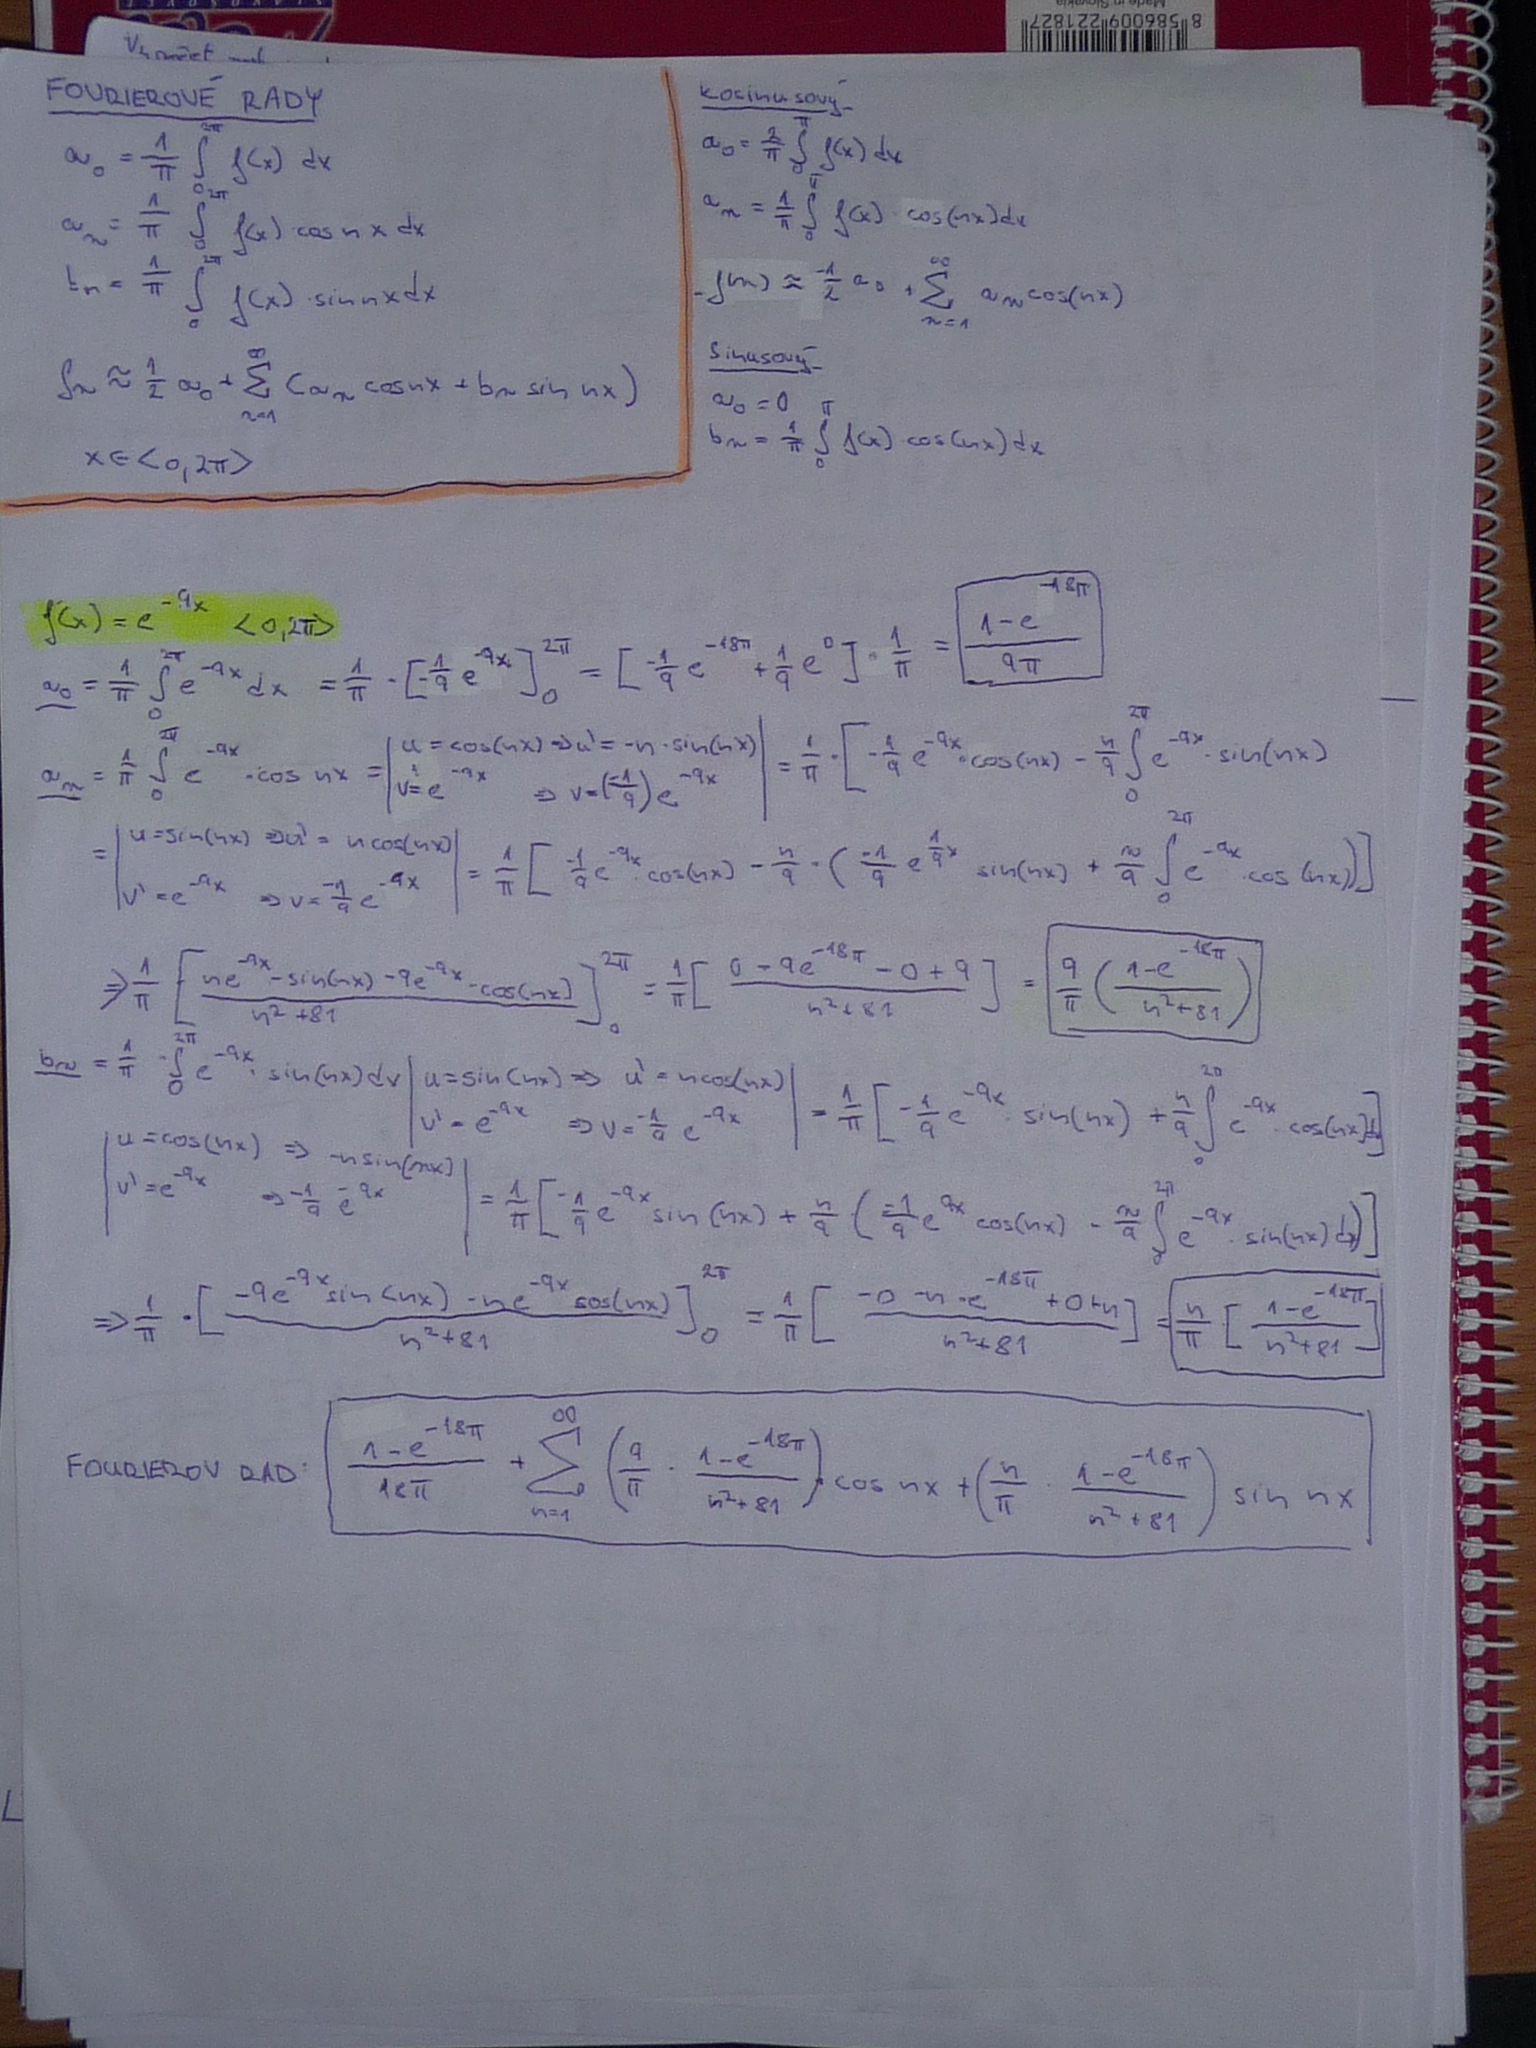 8586009221827
Made in Slovakia
FOURIEROVÉ RADY
a₀ = 1/π ∫₀^2π f(x) dx
aₙ = 1/π ∫₀^2π f(x)·cos nx dx
bₙ = 1/π ∫₀^2π f(x)·sin nx dx
fₙ ≈ 1/2 a₀ + Σ_{n=1}^∞ (aₙ cos nx + bₙ sin nx)
x ∈ <0, 2π>
Kosinusový
a₀ = 2/π ∫₀^π f(x) dx
aₙ = 1/π ∫₀^π f(x)·cos(nx) dx
f(n) ≈ 1/2 a₀ + Σ_{n=1}^∞ aₙ cos(nx)
Sinusový
a₀ = 0
bₙ = 1/π ∫₀^π f(x)·cos(nx) dx
f(x) = e^{-9x} <0, 2π>
a₀ = 1/π ∫₀^2π e^{-9x} dx = 1/π · [-1/9 e^{-9x}]₀^2π = [-1/9 e^{-18π} + 1/9 e⁰] · 1/π = (1-e^{-18π})/(9π)
aₙ = 1/π ∫₀^2π e^{-9x} · cos nx = | u = cos(nx) ⇒ u' = -n·sin(nx) v' = e^{-9x} ⇒ v = (-1/9) e^{-9x} | = 1/π · [-1/9 e^{-9x}·cos(nx) - n/9 ∫₀^2π e^{-9x}·sin(nx)
= | u = sin(nx) ⇒ u' = n cos(nx) v' = e^{-9x} ⇒ v = -1/9 e^{-9x} | = 1/π [-1/9 e^{-9x}·cos(nx) - n/9 · (-1/9 e^{1/9 x} sin(nx) + n/9 ∫₀^2π e^{-9x}·cos(nx))]
⇒ 1/π [(ne^{-9x}-sin(nx) - 9e^{-9x}·cos(nx))/(n²+81)]₀^2π = 1/π [(0 - 9e^{-18π} - 0 + 9)/(n²+81)] = 9/π ((1-e^{-18π})/(n²+81))
bₙ = 1/π · ∫₀^2π e^{-9x}·sin(nx) dx | u = sin(nx) ⇒ u' = n cos(nx) v' = e^{-9x} ⇒ v = -1/9 e^{-9x} | = 1/π [-1/9 e^{-9x}·sin(nx) + n/9 ∫₀^2π e^{-9x}·cos(nx)dx]
| u = cos(nx) ⇒ -n sin(nx) v' = e^{-9x} ⇒ -1/9 e^{-9x} | = 1/π [-1/9 e^{-9x} sin(nx) + n/9 (-1/9 e^{9x} cos(nx) - n/9 ∫₀^2π e^{-9x}·sin(nx) dx)]
⇒ 1/π · [(-9e^{-9x} sin(nx) - ne^{-9x} cos(nx))/(n²+81)]₀^2π = 1/π [(-0 - n·e^{-18π} + 0 + n)/(n²+81)] = n/π [(1-e^{-18π})/(n²+81)]
FOURIEROV RAD: (1-e^{-18π})/(18π) + Σ_{n=1}^∞ (9/π · (1-e^{-18π})/(n²+81))·cos nx + (n/π · (1-e^{-18π})/(n²+81)) sin nx